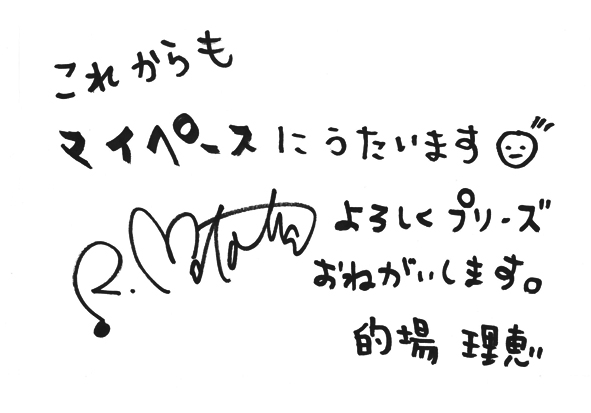 これからも
マイペースにうたいます
よろしくプリーズ
おねがいします。
的場 理恵